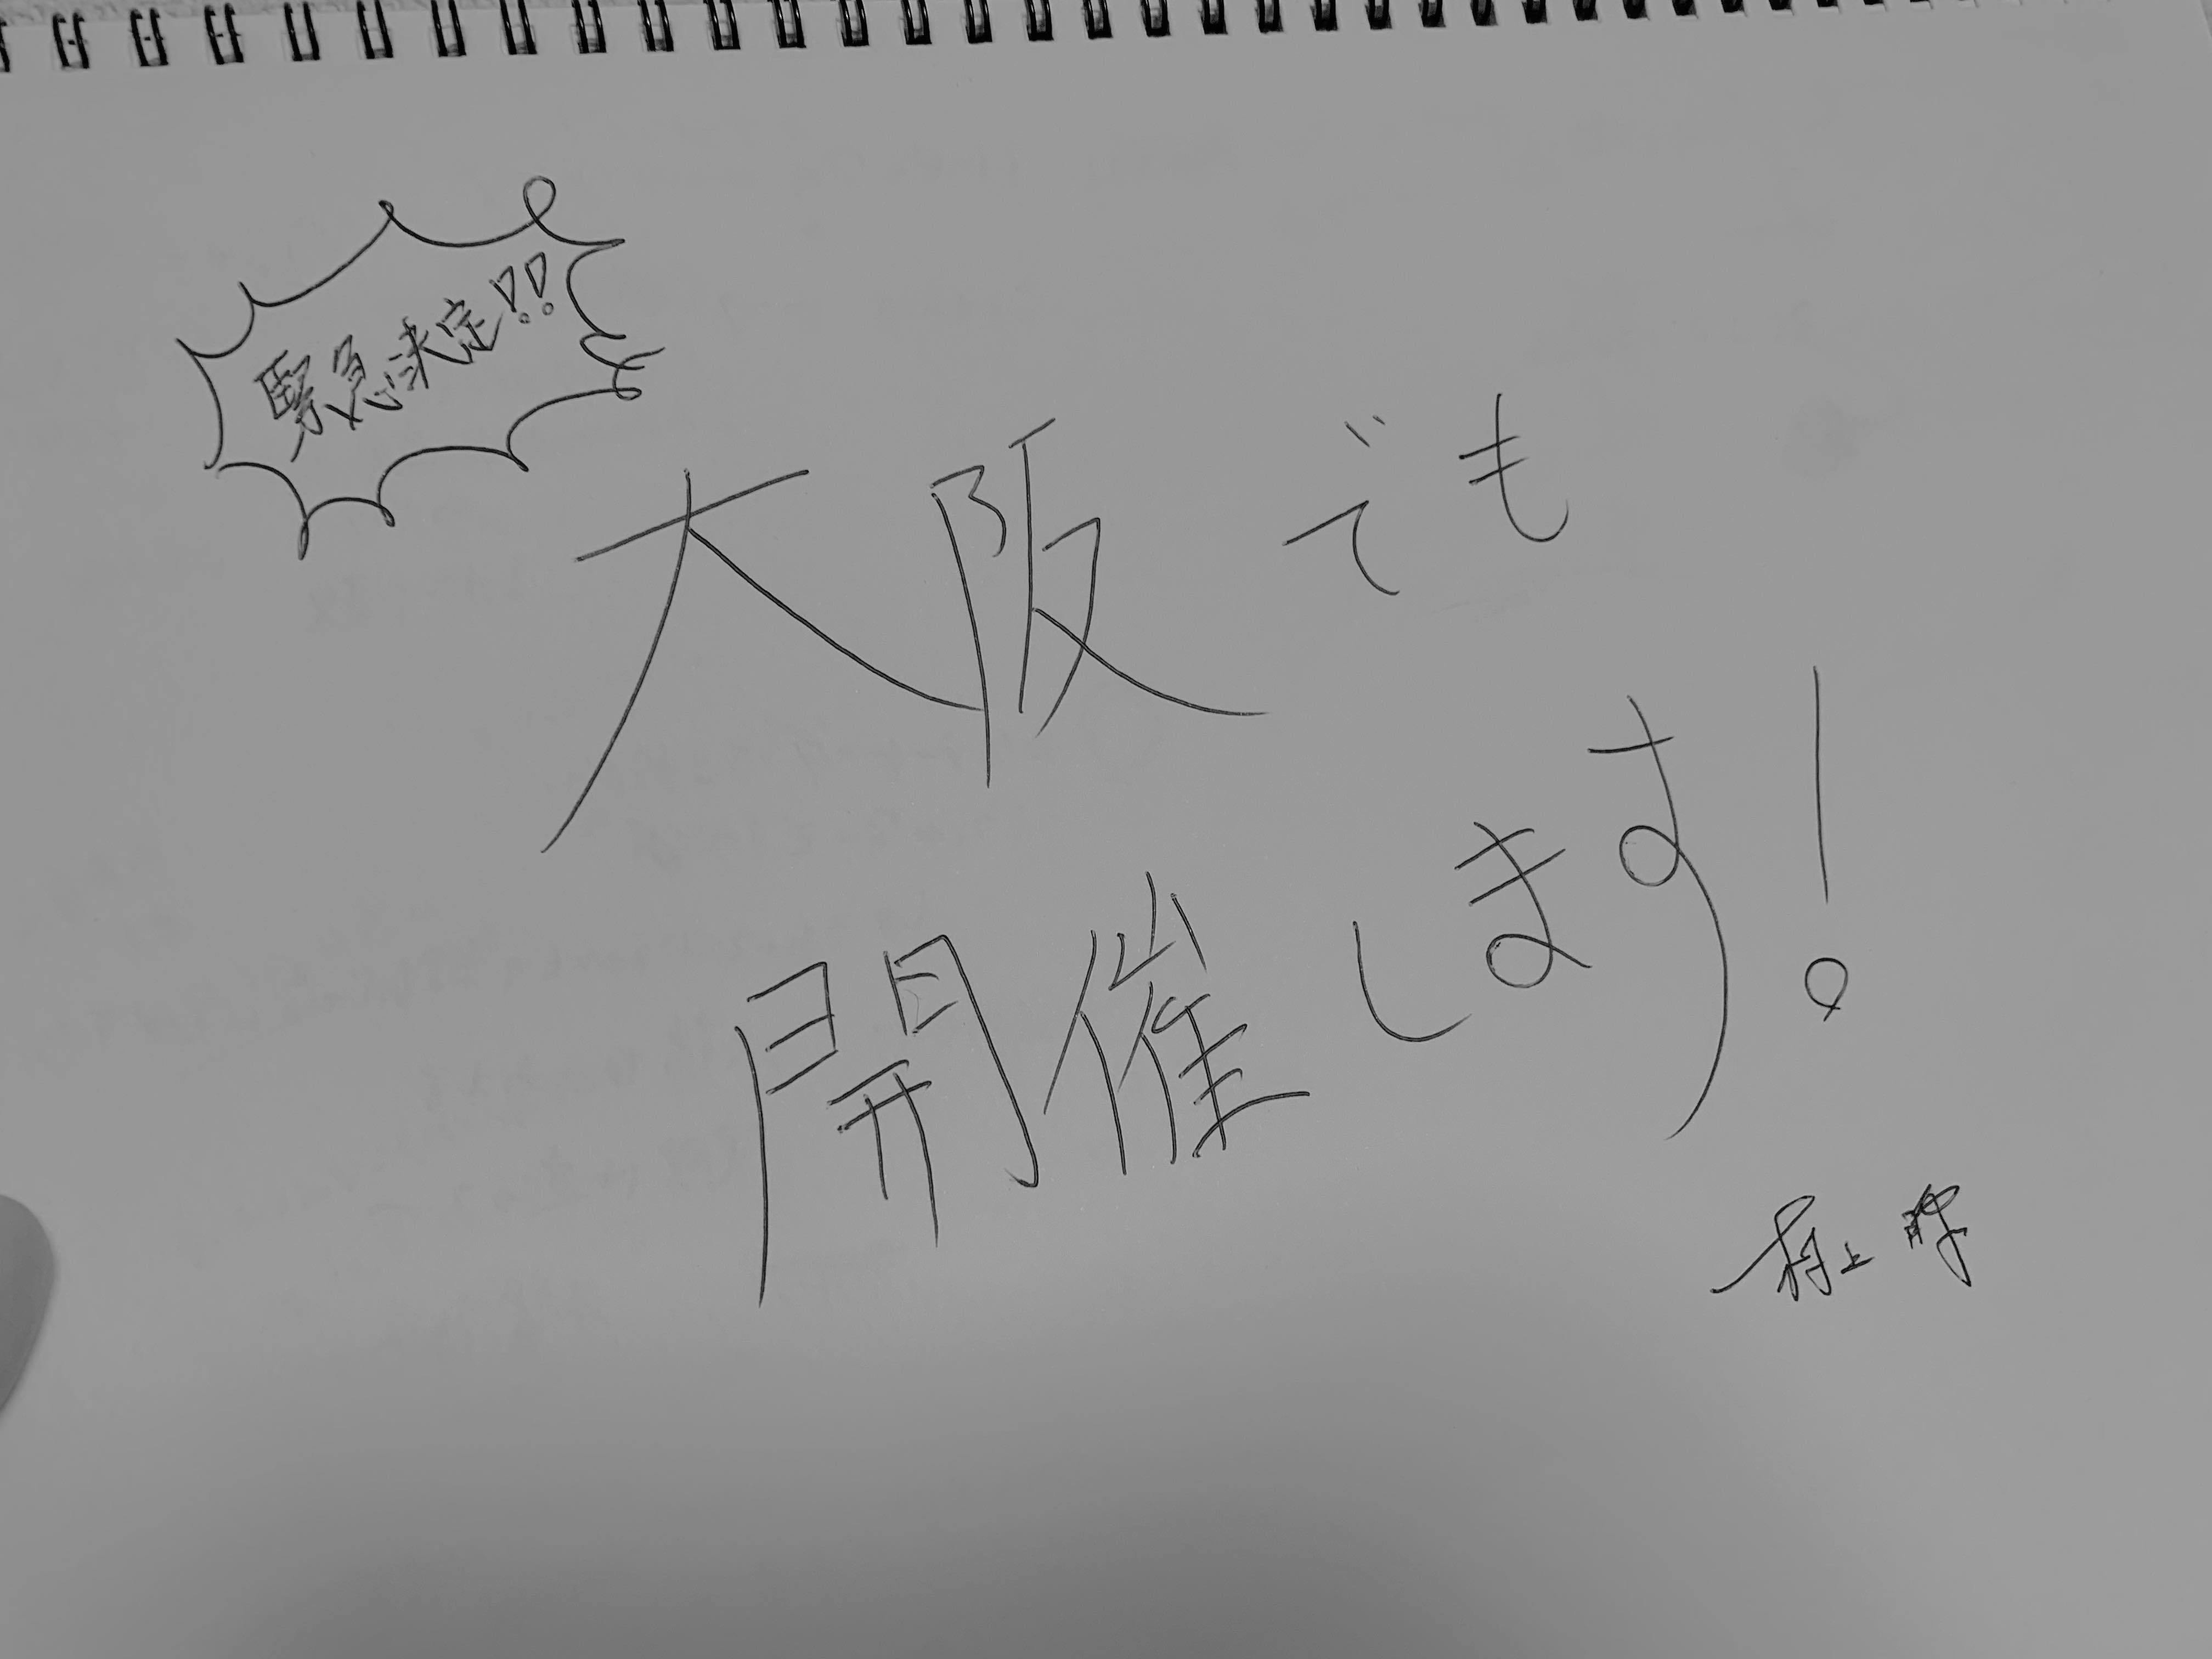 緊急決定!!
大阪でも
開催します!
村上